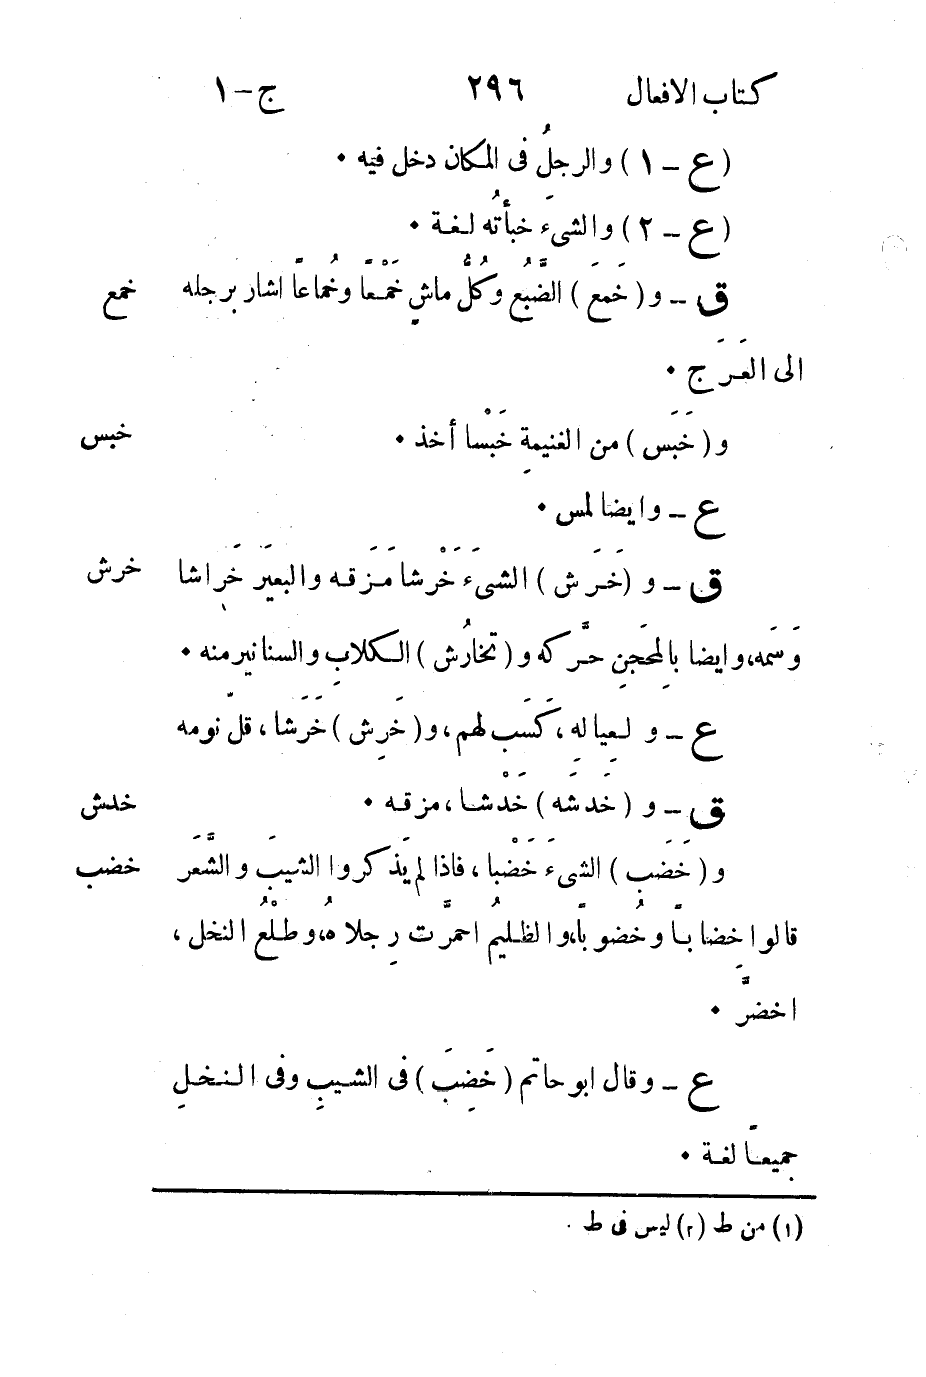 كتاب الافعال ٢٩٦ ج - ١
( ع - ١ ) والرجلُ فى المكان دخل فيه •
( ع - ٢ ) والشىءَ خبأتُه لغة •
ق - و ( خَمَعَ ) الضَّبُعُ وكُلُّ ماشٍ خَمْعًا وخُماعًا اشار برجله خمع
الى العَرَج •
و ( خَبَس ) من الغنيمةِ خَبْسا أخذ • خبس
ع - وايضا لمس •
ق - و ( خَرَش ) الشىءَ خَرْشا مَزَقه والبعيرَ خِراشا خرش
وَسَمَه، وايضا بالمِحجَنِ حرَّكه و ( تخارُش ) الكلابِ والسنانير منه •
ع - و لعِيالِه ، كَسَب لهم ، و ( خَرِش ) خَرَشا ، قلّ نومه
ق - و ( خَدشَه ) خَدْشا ، مزقه • خدش
و ( خَضَب ) الشىءَ خَضْبا ، فاذا لم يَذكروا الشيبَ والشَّعَر خضب
قالوا خِضابًا وخُضوبًا، والظليمُ احمرَّت رِجلاهُ، وطلْعُ النخل ،
اخضَرَّ •
ع - وقال ابوحاتم ( خَضِبَ ) فى الشيبِ وفى النخلِ
جميعًا لغة •
(١) من ط (٢) ليس فى ط ٠